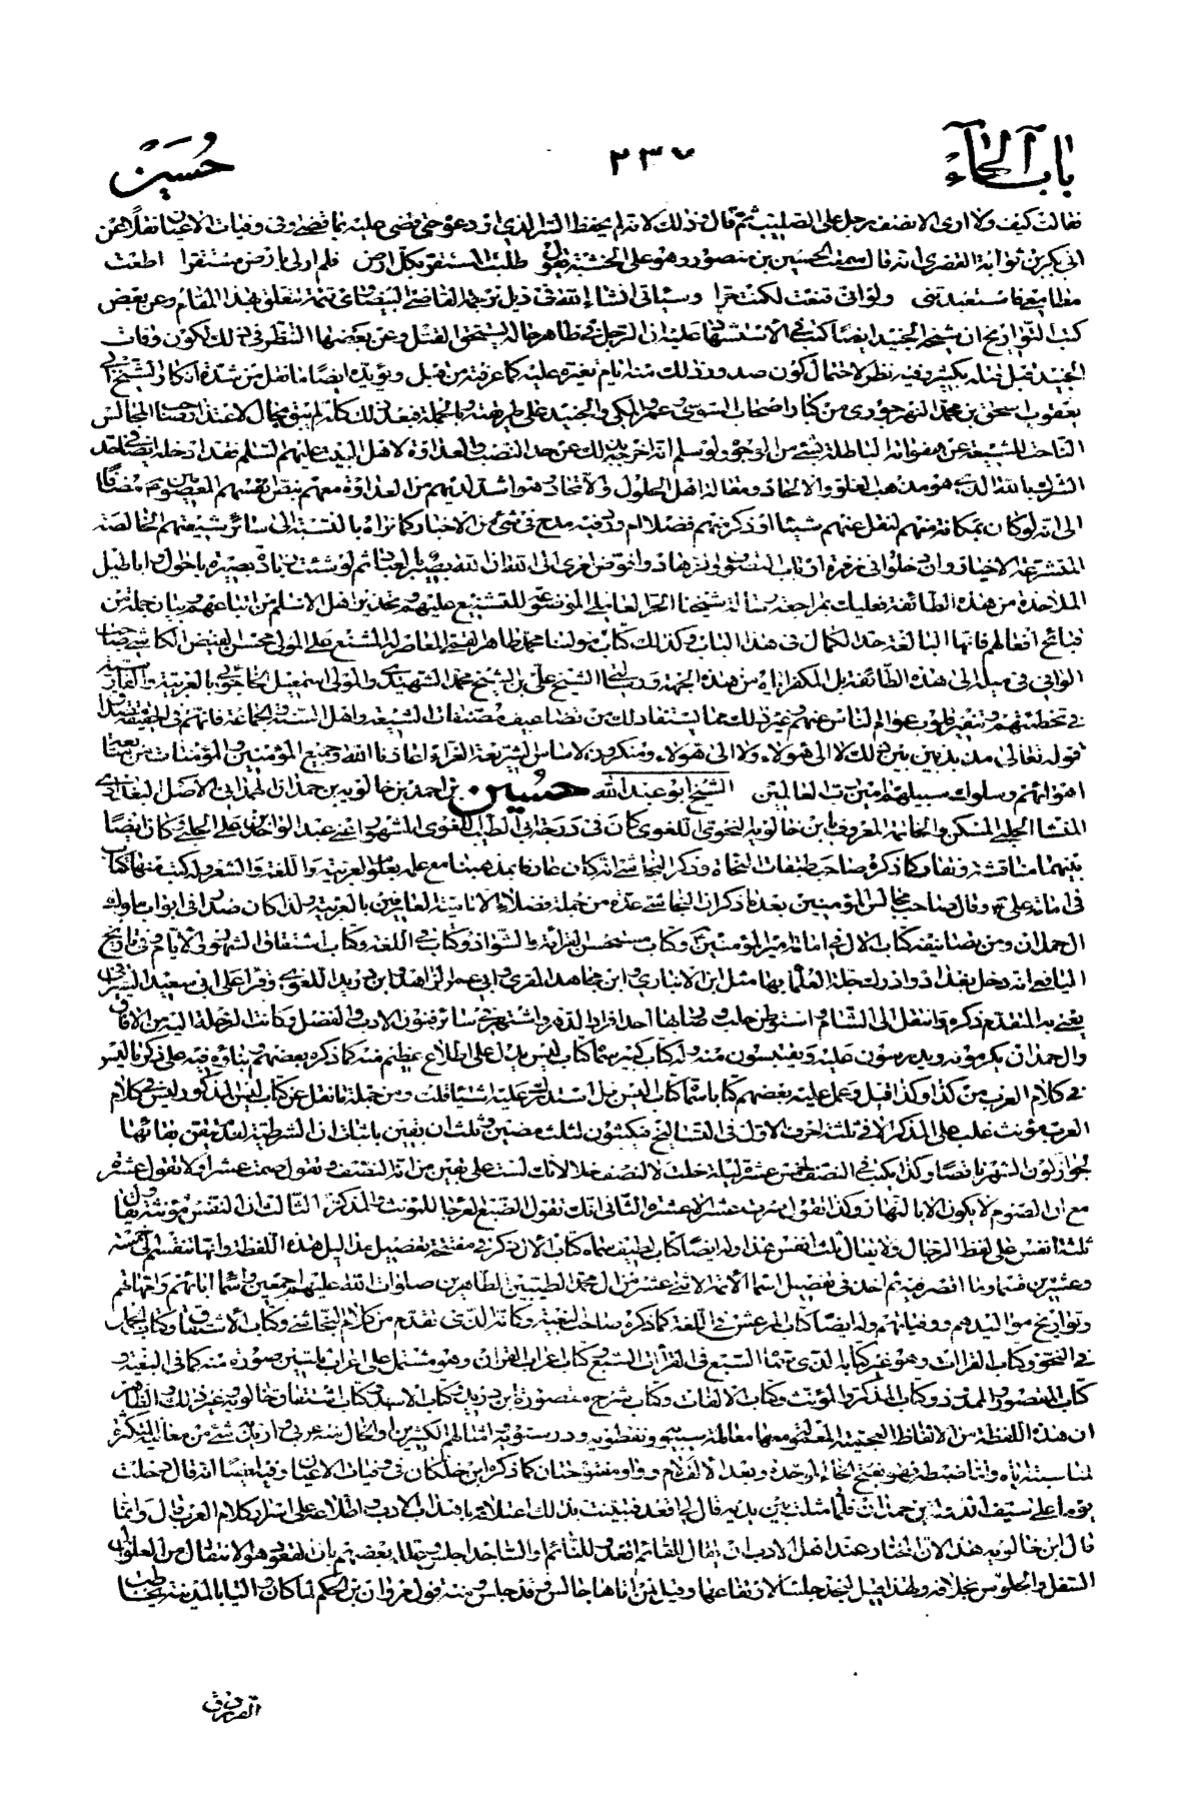 باب الحاء
٢٣٧
حسين
فقالت كيف ولا ارى الا نصف رجل على الصليب ثم قال ذلك لانه لم يحفظ السر الذى اودعوه حتى قضى عليه بما قضى وفى وفيات الاعيان نقلا عن
ابى بكر بن ثوابة القصرى انه قال سمعت الحسين بن منصور وهو على الخشبة يقول طلبت المستقر بكل ارض فلم ار لى بارض مستقرا اطعت
مطامعى فاستعبدتنى ولو انى قنعت لكنت حرا وسياتى انشاء الله فى ذيل ترجمة القاضى البيضاوى تتمة تتعلق بهذا المقام وعن بعض
كتب التواريخ ان شيخه الجنيد ايضا كتب فى الاستشهاد عليه ان الرجل فى ظاهر حاله يستحق القتل وعن بعضها النظر فى ذلك لكون وفات
الجنيد قبل قتله بكثير وفيه نظر لاحتمال كون صدور ذلك منه ايام تغيره عليه كما عرفته من قبل ويؤيده ايضا ما نقل من شدة انكار الشيخ ابى
يعقوب اسحق بن محمد النهرجورى من كبار اصحاب السوسى وعمرو المكى والجنيد على طريقته وبالجملة فبعد ذلك كله لم يبق مجال لاعتذار صاحب المجالس
الشرك بالله الذى هو مذهب الغلو والالحاد ومقالة اهل الحلول والاتحاد هو اشد لديهم من العداوة معهم بنقض انفسهم المعصومين مضافا
الى انه لو كان بمكانة منهم لنقل عنهم شيئا او ذكروا منهم فضلا له او ورد فيه مدح فى شىء من الاخبار كما نراه بالنسبة الى سائر شيعتهم الخالصة
الملاحدة من هذه الطائفة فعليك بمراجعة رسالة شيخنا الحر العاملى الموضوعة للتشنيع عليهم وتحذير اهل الاسلام من اتباعهم وبيان جملة من
قبائح افعالهم فانها البالغة حد الكمال فى هذا الباب وكذلك كتاب مولينا محمد طاهر القمى المعاصر له المشنع على المولى محسن الفيض الكاشى صاحب
الوافى فى ميله الى هذه الطائفة بل المكفر اياه من هذه الجهة ورسالتى الشيخ على بن الشيخ محمد الشهيدى والمولى اسمعيل الخاجوئى بالعربية والفارسية
قوله تعالى مذبذبين بين ذلك لا الى هؤلاء ولا الى هؤلاء ومنكرون لاساس الشريعة الغراء اعاذنا الله وجميع المؤمنين والمؤمنات من متابعة
اهوائهم وسلوك سبيلهم امين رب العالمين الشيخ ابو عبد الله حسين بن احمد بن خالويه بن حمدان الهمدانى الاصل البغدادى
المنشا الحلبى المسكن والخاتمة المعروف بابن خالويه النحوى اللغوى كان فى درجة ابى الطيب اللغوى المشهور اعنى عبد الواحد بن على الحلبى كان ايضا
بينهما مناقشة ونفار كما ذكره صاحب طبقات النحاة وذكر النجاشى انه كان عارفا بمذهبنا مع علمه بعلوم العربية واللغة والشعر وله كتب منها كتاب
فى امامة على ع وقال صاحب مجالس المؤمنين بعد ما ذكر ان النجاشى عده من جملة فضلاء الامامية العارفين بالعربية ولذا كان صدرا فى ابواب ملوك
ال حمدان ومن تصانيفه كتاب الال فى امامة امير المؤمنين ع وكتاب مستحسن القرائة والشواذ وكتاب فى اللغة وكتاب اشتقاق الشهور والايام وفى تاريخ
اليافعى انه دخل بغداد وادرك جلة العلماء بها مثل ابن الانبارى وابن مجاهد المقرى وابى عمر الزاهد وابن دريد اللغوى وقرا على ابى سعيد السيرافى
يعنى به المتقدم ذكره وانتقل الى الشام واستوطن حلب وصار بها احد افراد الدهر واشتهر فى سائر فنون الادب والفضل وكانت الرحلة اليه من الافاق
وال حمدان يكرمونه ويدرسون عليه ويقتبسون منه وله كتاب كبير سماه كتاب ليس يدل على اطلاع عظيم منه كما ذكره بعضهم بناؤه فيه على ذكر ما ليس
فى كلام العرب من كذا وكذا قيل وعمل عليه بعضهم كتابا سماه كتاب الليس بل استدرك عليه اشياء قلت ومن جملة ما نقل عن كتاب ليس المذكور وليس فى كلام
العرب مؤنث غلب على المذكر الا فى ثلثة احرف الاول فى التاريخ فيكتبون لثلث مضين وثلث ان بقين باثبات ان الشرطية لعدم تيقن بقائها
لجواز كون الشهر ناقصا وكذا يكتب فى النصف لخمس عشرة ليلة خلت لا لنصف خلا لانك لست على يقين من انه النصف وتقول صمت عشرا ولا تقول عشرة
مع ان الصوم لا يكون الا بالنهار وكذا تقول سرت عشرا لا عشرة الثانى انك تقول الضبع العرجاء للمؤنث والمذكر الثالث ان النفس مؤنثة ويقال
ثلثة انفس على لفظ الرجال ولا يقال ثلث انفس هذا وله ايضا كتاب لطيف سماه كتاب الال ذكر فى مفتتحه تفصيل معانى هذه اللفظة وانها تنقسم الى خمسة
وعشرين قسما وما اقصر فيه ثم اخذ فى تفصيل اسماء الائمة الاثنى عشر من ال محمد الطيبين الطاهرين صلوات الله عليهم اجمعين واسماء ابائهم وامهاتهم
وتواريخ مواليدهم ووفياتهم وله ايضا كتاب اطرغش فى اللغة كما ذكره صاحب البغية وكانه الذى تقدم من كلام النجاشى وكتاب الاشتقاق وكتاب الجمل
فى النحو وكتاب القراات وهو غير كتابه الذى سماه السبع فى القراات السبع كتاب اعراب القران وهو مشتمل على اعراب ثلثين سورة منه كما فى البغية و
كتاب المقصور والممدود وكتاب المذكر والمؤنث وكتاب الالفات وكتاب شرح مقصورة ابن دريد وكتاب الاسد وكتاب اشتقاق خالويه وغير ذلك والظاهر
ان هذه اللفظة من الالفاظ العجمية معاملة سيبويه ونفطويه ودرستويه وامثالهم الكثيرين
لمناسبته اياه واما ضبطه فهو بفتح الخاء الموحدة وبعد الالف لام وواو مفتوحتان كما ذكره ابن خلكان فى وفيات الاعيان وفيه ايضا انه قال دخلت
يوما على سيف الدولة بن حمدان فلما مثلت بين يديه قال لى اقعد فتبينت بذلك اعتلاقه باهداب الادب واطلاعه على اسرار كلام العرب قال وانما
قال ابن خالويه هذا لان المختار عند اهل الادب ان يقال للقائم اقعد وللنائم والساجد اجلس وعلله بعضهم بان القعود هو الانتقال من العلو الى
السفل والجلوس بخلافه ولهذا قيل لنجد جلسا لارتفاعها وقيل لمن اتاها جالس وقد جلس ومنه قول مروان بن الحكم لما كان واليا بالمدينة يخاطب
الفرزدق